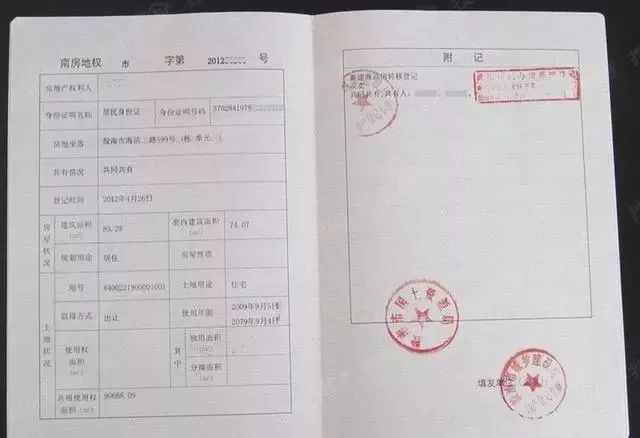 南房地权 市 字第 2012 号
房地产权利人
身份证明名称 居民身份证 身份证明号码 3702841978
房地坐落 胶南市海滨 路599号 栋 单元
共有情况 共同共有
登记时间 2012年4月26日
房屋状况 建筑面积(m²) 85.29 套内建筑面积(m²) 74.07
规划用途 居住 房屋性质
土地状况 地号 6400221900001001 土地用途 住宅
取得方式 出让 使用年限 2009年9月5日至
2079年9月4日
使用权面积(m²) 其中 独用面积(m²)
分摊面积(m²)
共用使用权面积(m²) 90688.09
附记
新建商品房转移登记
共同共有,共有人:
胶南市国土资源局
胶南市城乡建设局
填发单位